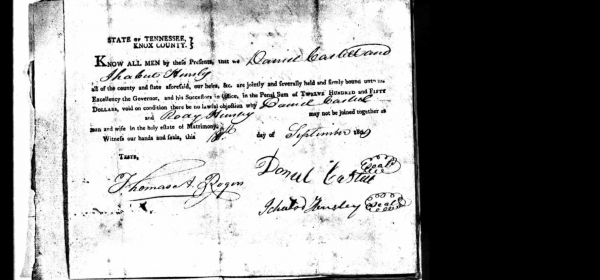 STATE OF TENNESSEE,
KNOX COUNTY.
KNOW ALL MEN by these Presents, that we Daniel Casteel and
Ichabud Hensly
all of the county and state aforesaid, our heirs, &c. are jointly and severally held and firmly bound unto his
Excellency the Governor, and his Successors in Office, in the Penal Sum of TWELVE HUNDRED AND FIFTY
DOLLARS, void on condition there be no lawful objection why Daniel Casteel
and Hensly may not be joined together as
man and wife in the holy estate of Matrimony.
Witness our hands and seals, this day of September
TESTE,
Thomas A. Rogers
Daniel Casteel Seal
Ichabod Hensley Seal